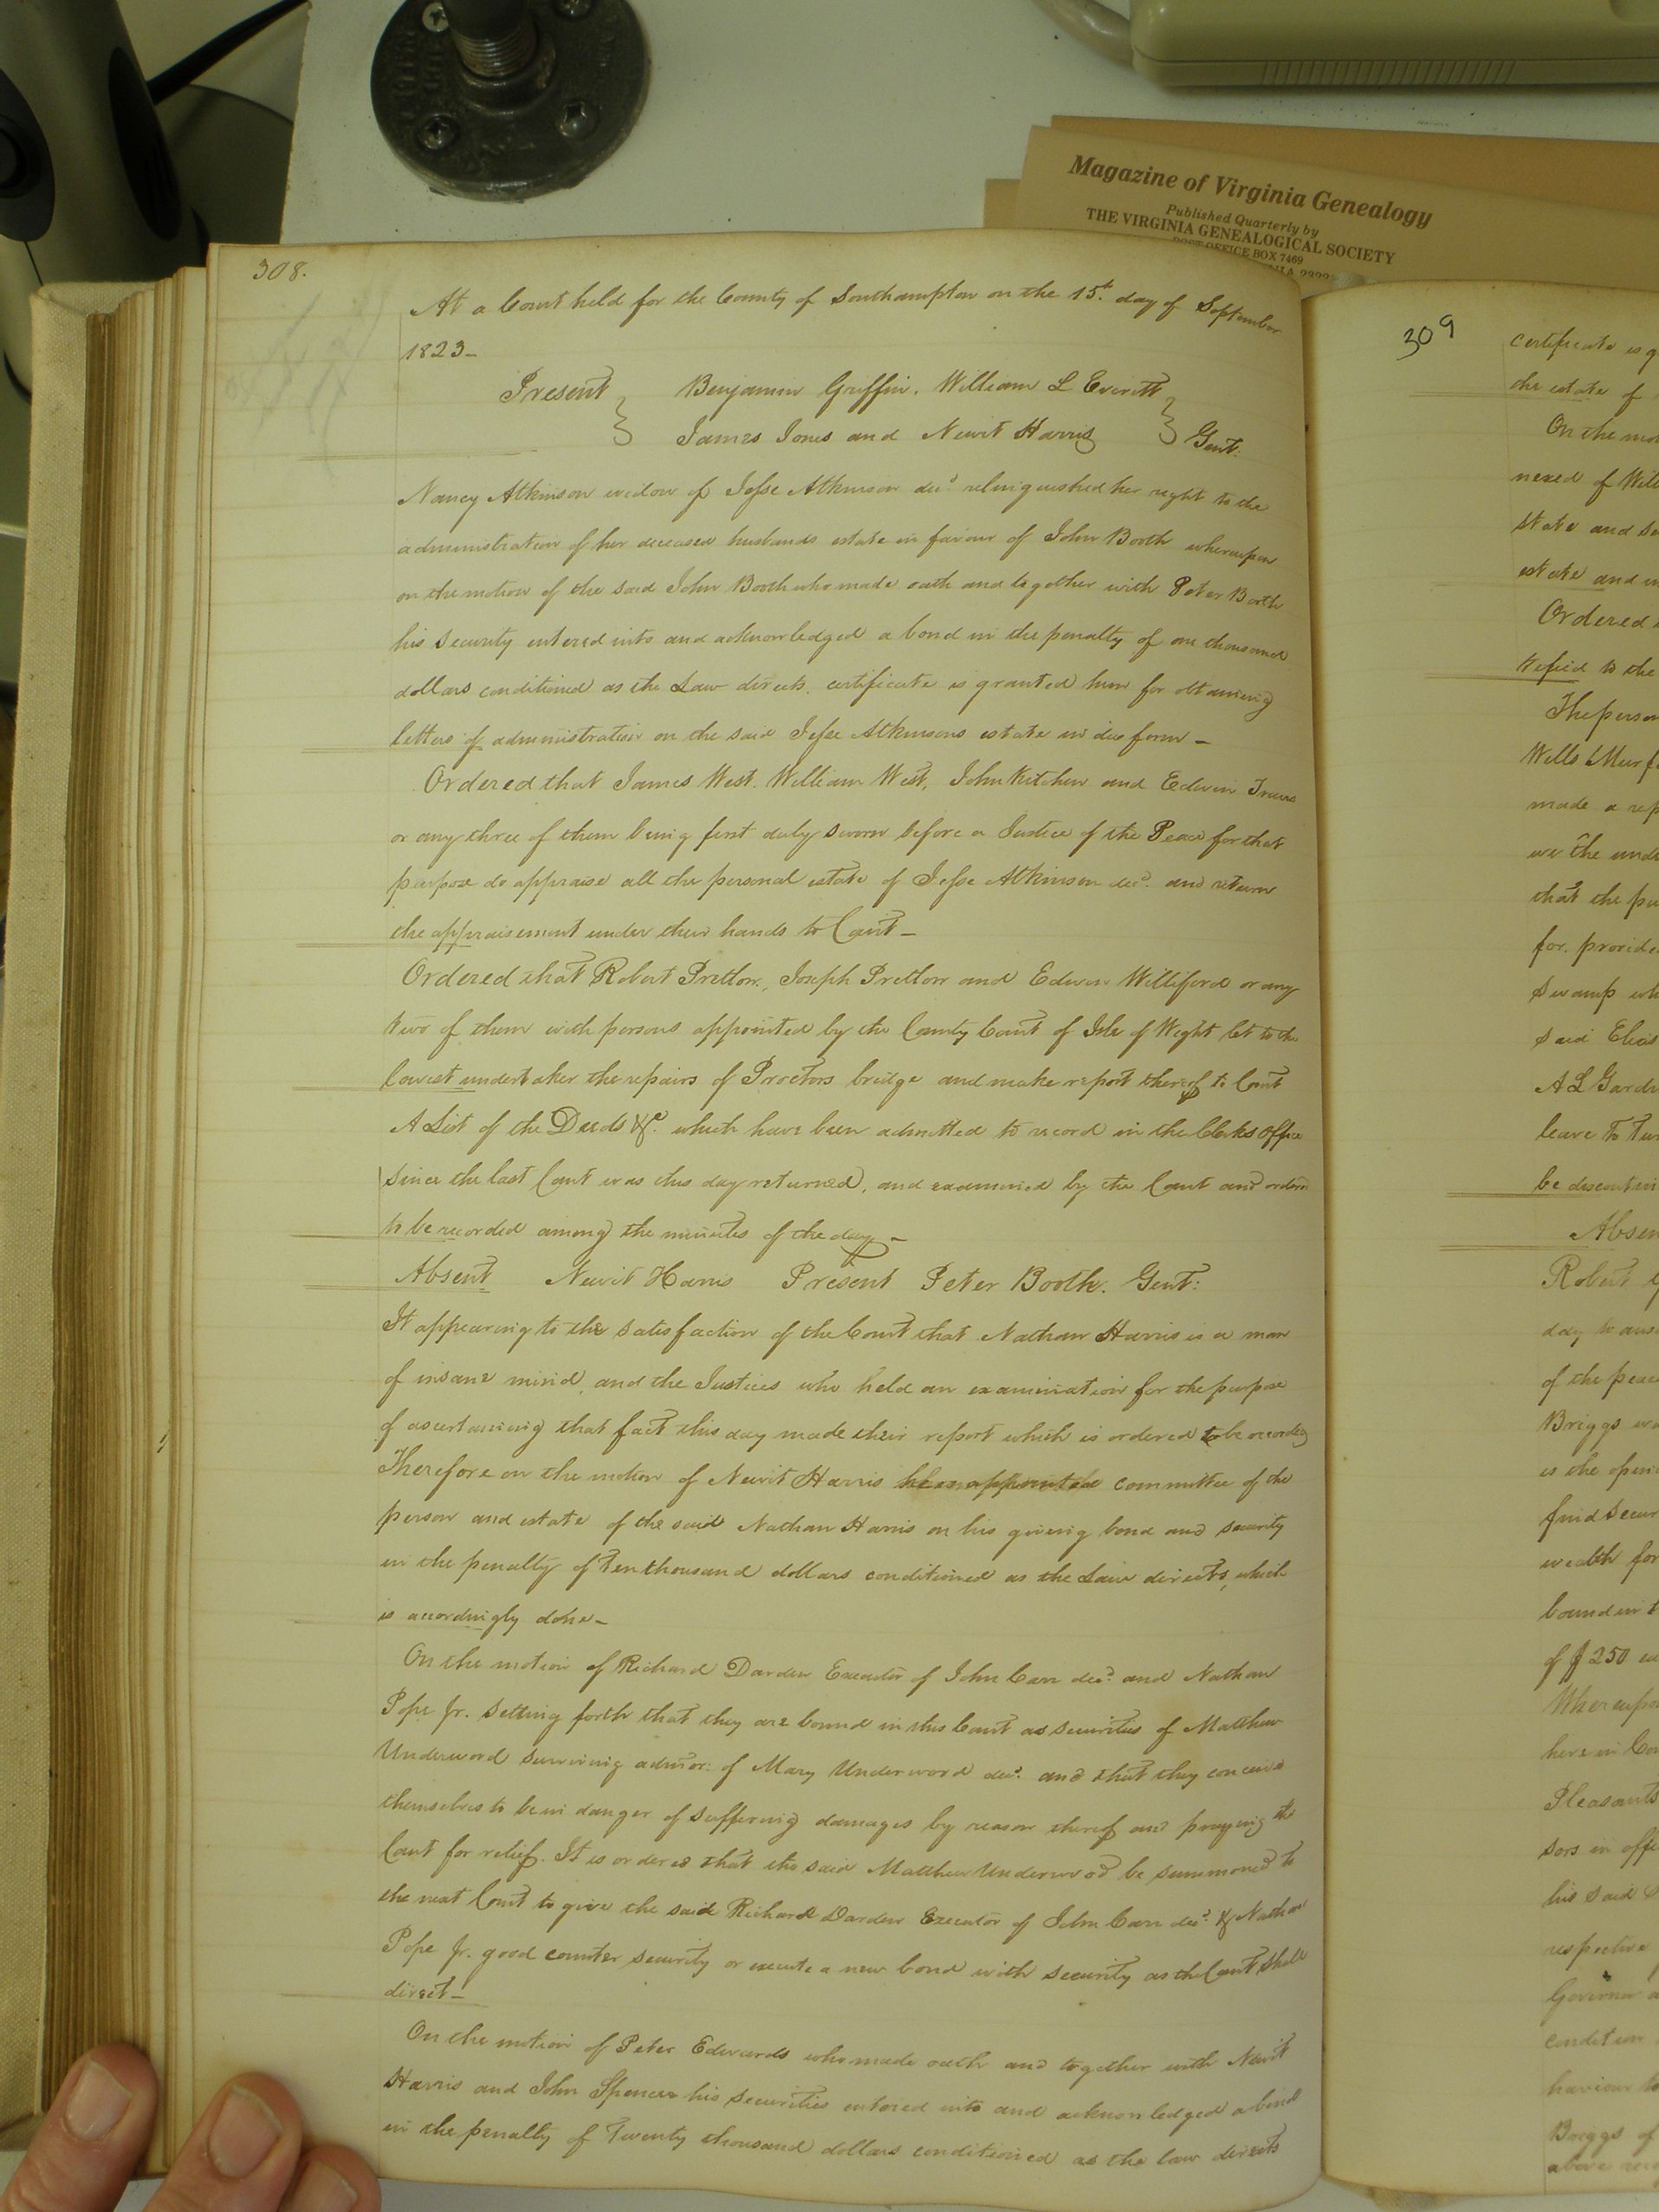 Magazine of Virginia Genealogy
Published Quarterly by
THE VIRGINIA GENEALOGICAL SOCIETY
POST OFFICE BOX 7469
308.
At a Court held for the County of Southampton on the 15th. day of September
1823_
Present } Benjamin Griffin. William L Everitt
James Jones and Newit Harris } Gent.
Nancy Atkinson widow of Jesse Atkinson decd. relinquished her right to the
administration of her deceased husbands estate in favour of John Booth whereupon
on the motion of the said John Booth who made oath and together with Peter Booth
his security entered into and acknowledged a bond in the penalty of one thousand
dollars conditioned as the Law directs. certificate is granted him for obtaining
letters of administration on the said Jesse Atkinsons estate in due form _
Ordered that James West. William West, John Kitchen and Edwin
or any three of them being first duly sworn before a Justice of the Peace for that
purpose do appraise all the personal estate of Jesse Atkinson decd. and return
the appraisement under their hands to Court _
Ordered that Robert Pretlow, Joseph Pretlow and Edwin Williford or any
two of them with persons appointed by the County Court of Isle of Wight let to the
lowest undertaker the repairs of Proctors bridge and make report thereof to Court
A List of the Deeds &c. which have been admitted to record in the Clerks Office
since the last Court was this day returned, and examined by the Court and ordered
to be recorded among the minutes of the day _
Absent Newit Harris Present Peter Booth. Gent:
It appearing to the satisfaction of the Court that Nathan Harris is a man
of insane mind, and the Justices who held an examination for the purpose
of ascertaining that fact this day made their report which is ordered to be recorded
Therefore on the motion of Newit Harris he is appointed committee of the
person and estate of the said Nathan Harris on his giving bond and security
in the penalty of Ten thousand dollars conditioned as the Law directs, which
is accordingly done _
On the motion of Richard Darden Executor of John Carr decd. and Nathan
Pope Jr. setting forth that they are bound in this Court as securities of Matthew
Underwood surviving admor: of Mary Underwood decd. and that they conceive
themselves to be in danger of suffering damages by reason thereof and praying the
Court for relief. It is ordered that the said Matthew Underwood be summoned to
the next Court to give the said Richard Darden Executor of John Carr decd. & Nathan
Pope Jr. good counter security or execute a new bond with security as the Court shall
direct _
On the motion of Peter Edwards who made oath and together with Newit
Harris and John Spencer his securities entered into and acknowledged a bond
in the penalty of Twenty thousand dollars conditioned as the law directs
309
certificate is g
the estate of
On the mo
nexed of Will
state and
estate and
Ordered
to the
The person
Wells
made a rep
we the unde
that the
for. provide
Swamp wh
said Elias
A L Gard
leave to
be discontin
Absen
Robert
day to ans
of the peace
Briggs
is the opin
find secur
wealth for
bound in
of $250
Whereupo
here in Cou
Pleasants
sors in offi
his said
respective
Governor
condition
haviour
Briggs of
above